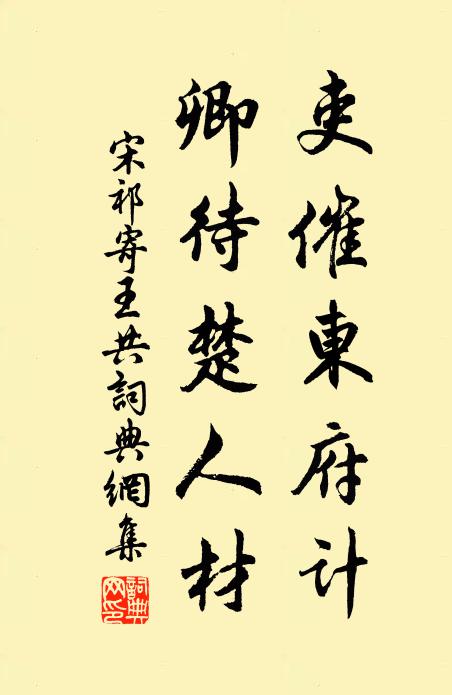 吏催東府計
卿待楚人材
宋祁寄王共詞典網集
詞典網印